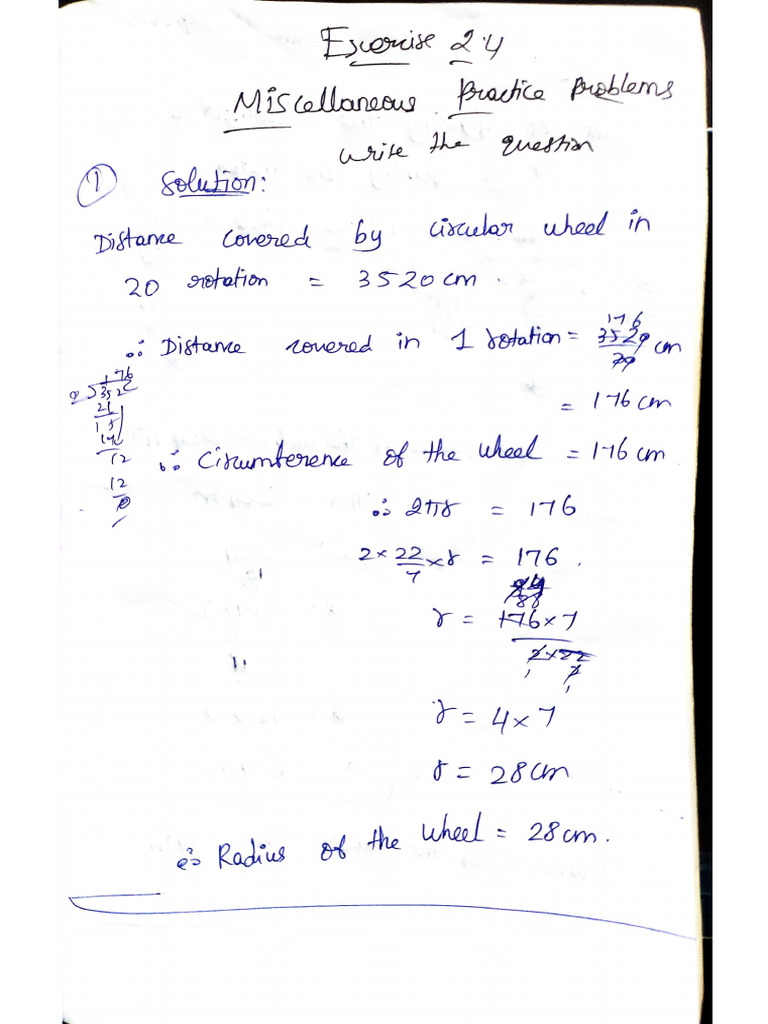 Excercise 2.4
Miscellaneous Practice Problems
write the question
① Solution:
Distance covered by circular wheel in
20 rotation = 3520 cm.
∴ Distance covered in 1 rotation = 3520/20 cm
176
= 176 cm
176
352
12
12
0
∴ Circumference of the wheel = 176 cm
∴ 2πr = 176
2 × 22/7 × r = 176.
88
r = 176 × 7 / 2 × 22
r = 4 × 7
r = 28 cm
∴ Radius of the wheel = 28 cm.